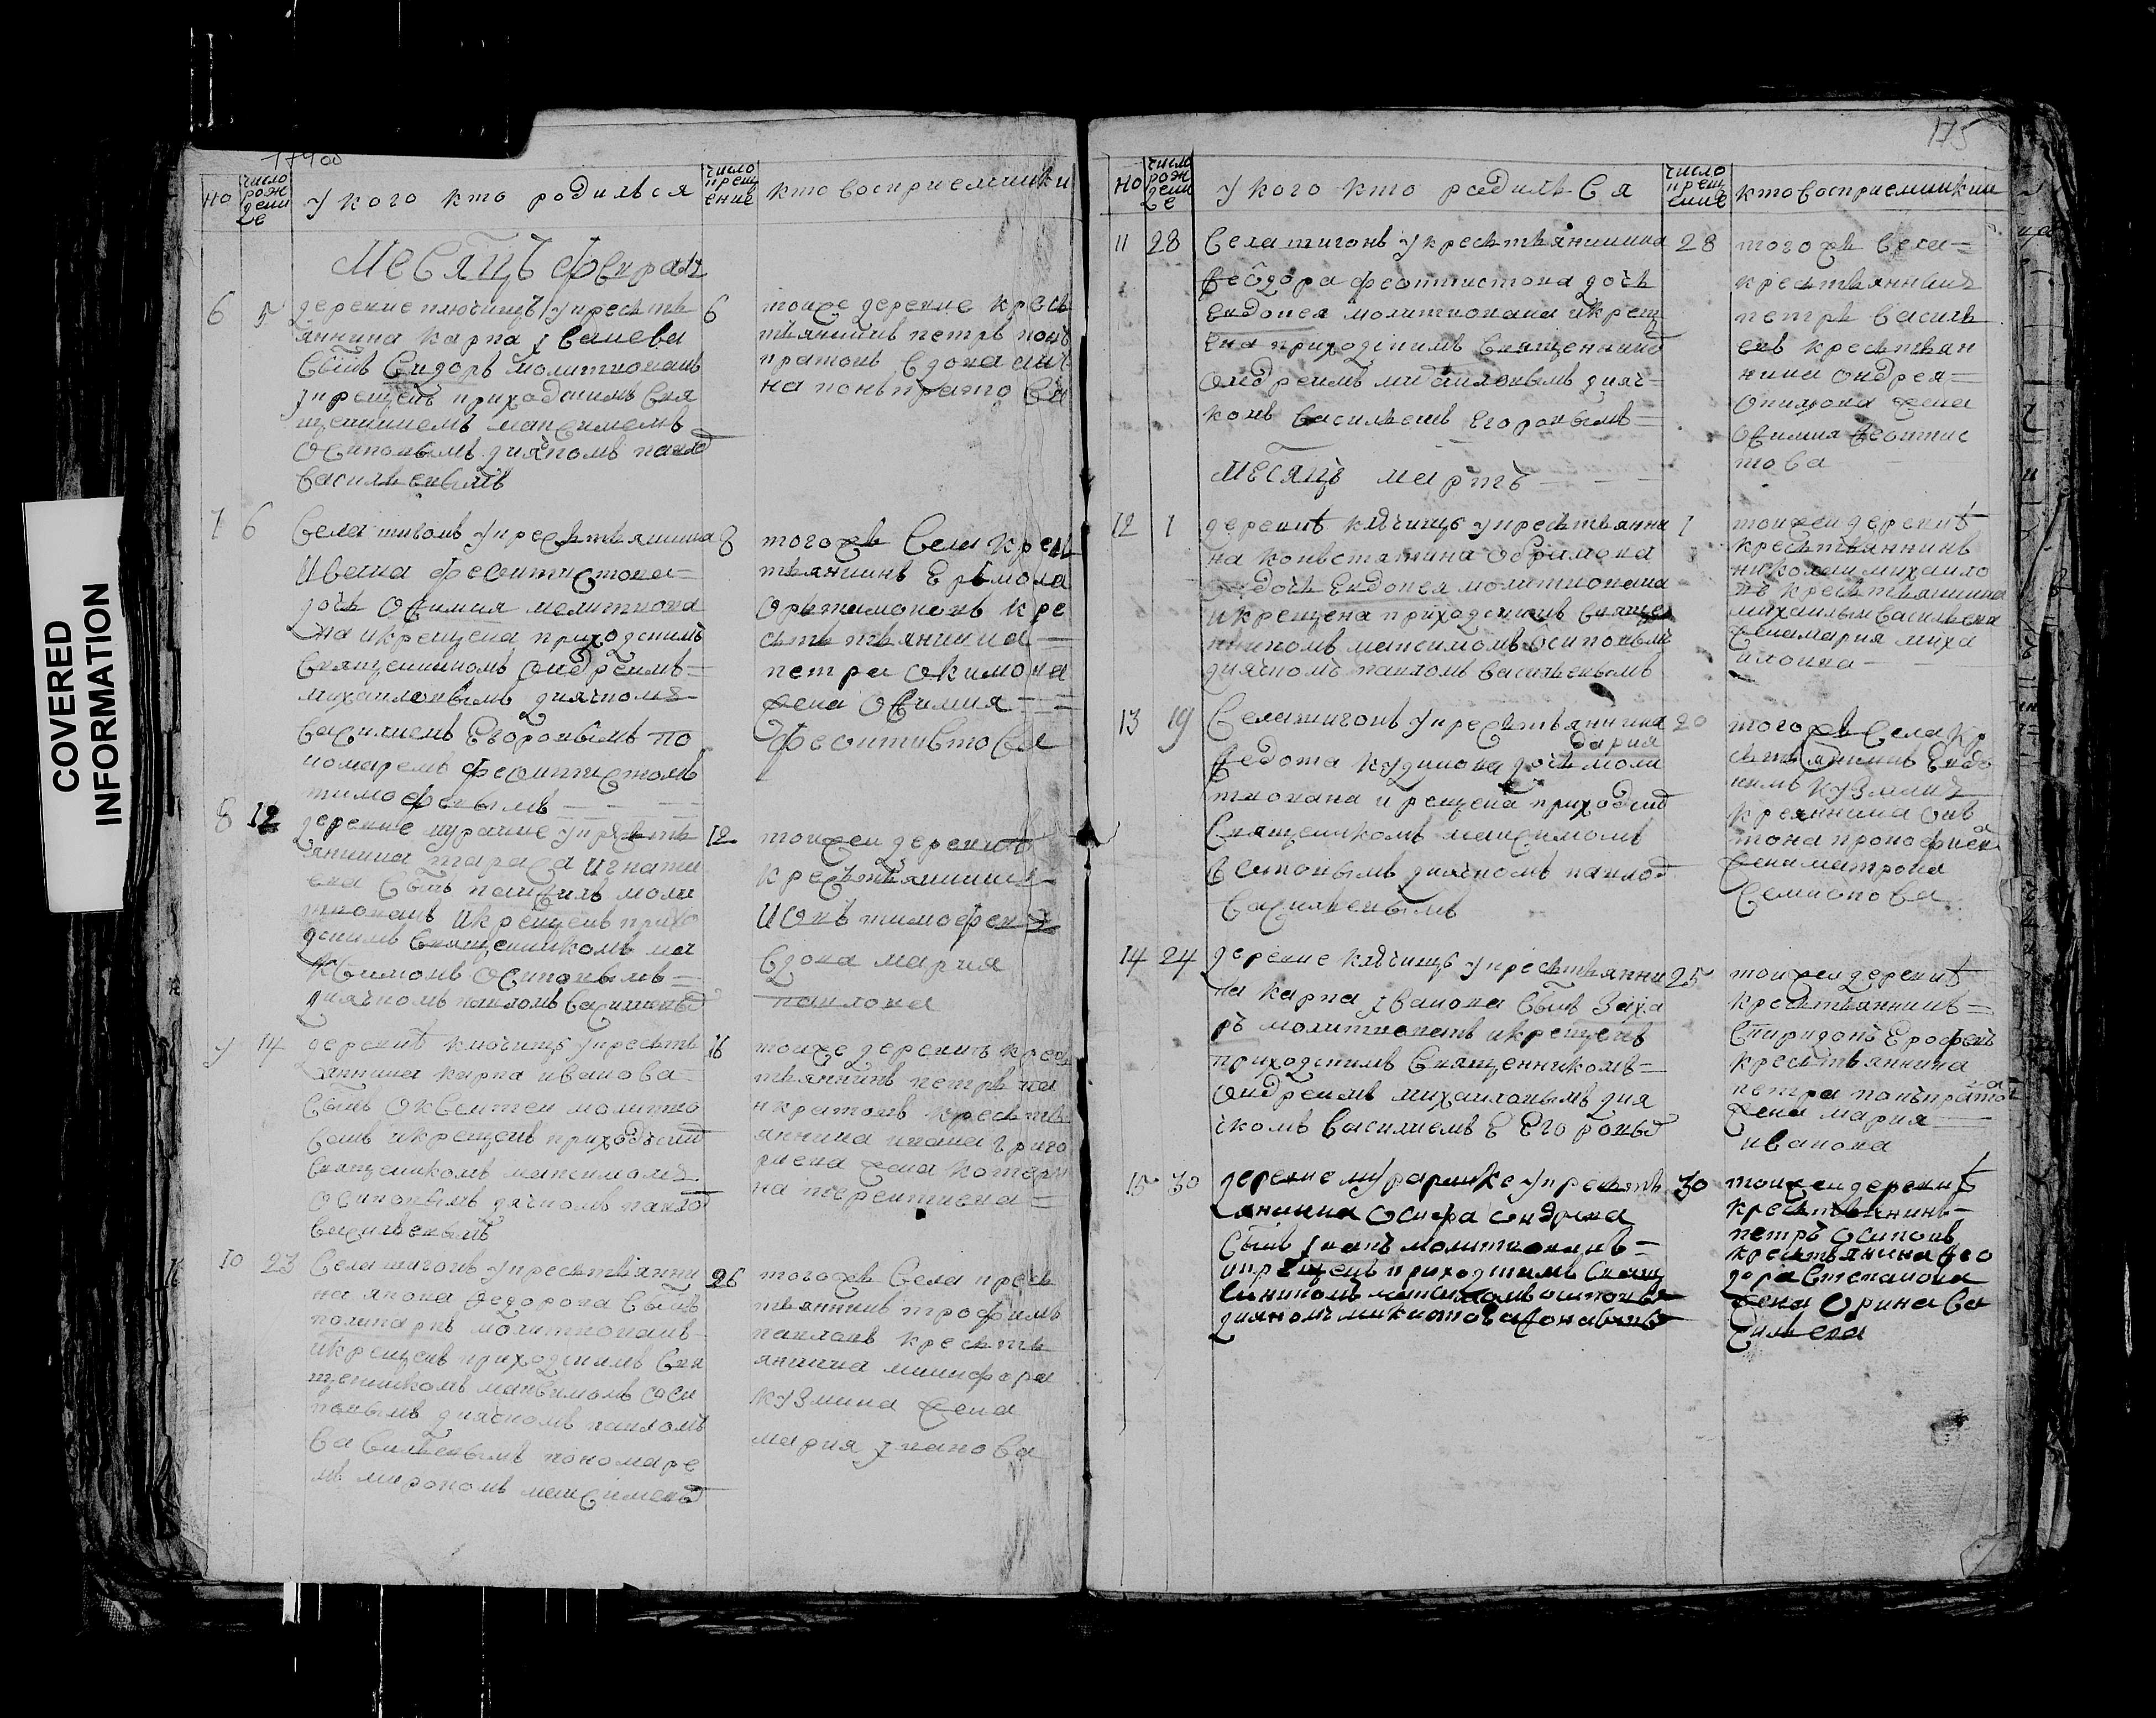 COVERED
INFORMATION
175
но
число рождение
у кого кто родилься
число крещение
кто восприемники
Месяцъ февраль
6 5
деревне ключищъ у кресть
яннина карпа
сынъ Сидоръ молитвованъ
крещенъ приходскимъ свя
щенникомъ максимомъ
осиповымъ диячкомъ павло
васильевымъ
6
тоиже деревне кресть
яннинъ петръ
7 6
села шигонь у крестьяннина
Ивана феоктистова
дочь офимия молитвова
на и крещена приходскимъ
священникомъ андреимъ
михаиловымъ диячкомъ
василиемъ Егоровымъ по
номаремъ феоктистомъ
тимофеевымъ
8
тогожъ села кресть
яннинъ Ермола
Ортамоновъ кре
стьтьяннина
петра окимова
жена офимия
феоктистова
8 12
деревне муранке у кресть
яннина тараса игнати
ева сынъ памфилъ моли
твованъ и крещенъ прихо
дскимъ священникомъ ма
ксимомъ осиповымъ
диячкомъ павломъ василиевы
12
тоижеи деревнѣ
крестьяннинъ
Иовъ тимофеевъ
вдова мария
павлова
14
деревнѣ ключищъ у кресть
яннина карпа иванова
сынъ овксентеи молитво
ванъ и крещенъ приходским
священикомъ максимомъ
осиповымъ дячкомъ павло
васильевымъ
16
тоиже деревнѣ кресть
яннинъ петръ па
нкратовъ кресть
яннина ивана григо
риева жена катери
на терентиева
10 23
села шигонъ у крестьянни
на якова федорова сынъ
поликарпъ молитвованъ
и крещенъ приходскимъ свя
щенникомъ максимомъ оси
повымъ диячкомъ павломъ
васильевымъ пономаре
мъ мирономъ максимовы
26
тогожъ села кресть
яннинъ трофимъ
павловъ кресть
яннина никифора
кузмина жена
мария иванова
но
число рождение
у кого кто родилься
число крещение
кто восприемники
11 28
села шигонь у крестьяннина
феодора феоктистова дочь
Евдокея молитвована и крещ
ена приходскимъ священнико
андреимъ михаиловымъ дияч
комъ василиемъ Егоровымъ
28
тогожъ села
крестьяннинъ
петръ василь
евъ крестьян
нина андрея
жена
офимия феоктис
това
Месяцъ мартъ
12 1
деревнѣ клѣчищъ у крестьянни
на константина обрамова
дочь Евдокея молитвована
и крещена приходскимъ свяще
нникомъ максимомъ осиповымъ
диячкомъ павломъ васильевымъ
1
тоижеи деревнѣ
крестьяннинъ
николаи михаило
въ крестьяннина
михаилы васильева
жена мария миха
илова
13 19
села шигонъ у крестьяннина
федота кудинова дочь дария моли
твована и рещена приходским
священикомъ максимомъ
осиповымъ диячкомъ павло
васильевымъ
20
тогожъ села кр
естьяннинъ Евдо
кимъ кузминъ
жена матрона
семионова
14 24
деревне клѣчищъ у крестьянни
на карпа иванова сынъ Заха
ръ молитвованъ и крещенъ
приходскимъ священникомъ
андреимъ михаиловымъ дия
чкомъ василиемъ Егоровы
25
тоижеи деревнѣ
крестьяннинъ
спиридонъ Ерофеевъ
крестьяннина
петра панкратова
жена мария
иванова
15 30
деревне муранке у кресть
яннина осифа андреева
сынъ иванъ молитвованъ
и крещенъ приходскимъ свящ
енникомъ максимомъ осиповы
30
тоижеи деревнѣ
крестьяннинъ
петръ осиповъ
крестьянина фео
дора степанова
жена Орина ва
сильева